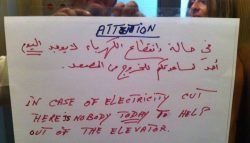 ATTENTION
في حالة وانقطاع الكهرباء لا يوجد اليوم
أحد لمساعدتكم للخروج من المصعد.
IN CASE OF ELECTRICITY CUT
HERE IS NOBODY TODAY TO HELP
OUT OF THE ELEVATOR.